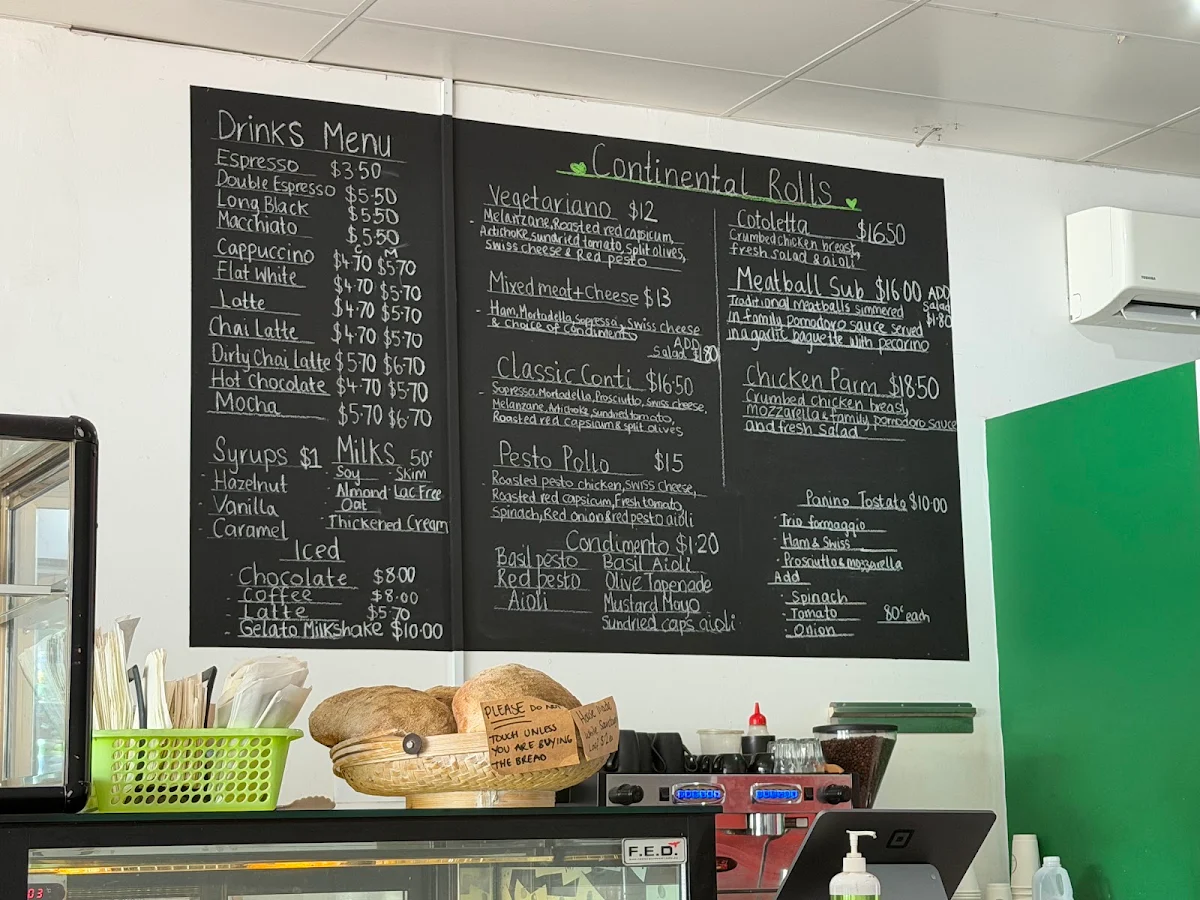 Drinks Menu
Espresso $3.50
Double Espresso $5.50
Long Black $5.50
Macchiato $5.50
C M
Cappuccino $4.70 $5.70
Flat White $4.70 $5.70
Latte $4.70 $5.70
Chai Latte $4.70 $5.70
Dirty Chai Latte $5.70 $6.70
Hot Chocolate $4.70 $5.70
Mocha $5.70 $6.70
Syrups $1
Hazelnut
Vanilla
Caramel
Milks 50c
Soy Skim
Almond Lac Free
Oat
Thickened Cream
Iced
Chocolate $8.00
Coffee $8.00
Latte $5.70
Gelato Milkshake $10.00
Continental Rolls
Vegetariano $12
Melanzane, Roasted red capsicum,
Artichoke, sundried tomato, Split olives,
Swiss cheese & Red pesto
Mixed meat + Cheese $13
Ham, Mortadella, Sopressa, Swiss cheese
& choice of Condiments
ADD
Salad $1.80
Classic Conti $16.50
Sopressa, Mortadella, Prosciutto, Swiss cheese,
Melanzane, Artichoke, Sundried tomato,
Roasted red capsicum & split olives
Pesto Pollo $15
Roasted pesto chicken, swiss cheese,
Roasted red capsicum, Fresh tomato,
Spinach, Red onion & red pesto aioli
Condimento $1.20
Basil pesto Basil Aioli
Red pesto Olive Tapenade
Aioli Mustard Mayo
Sundried caps aioli
Cotoletta $16.50
Crumbed chicken breast,
fresh salad & aioli
Meatball Sub $16.00 ADD
Salad
$1.80
Traditional meatballs simmered
in family pomodoro sauce served
in a garlic baguette with pecorino
Chicken Parm $18.50
Crumbed chicken breast,
mozzarella & family pomodoro sauce
and fresh salad
Panino Tostato $10.00
Trio formaggio
Ham & Swiss
Prosciutto & mozzarella
Add
Spinach
Tomato 80c each
Onion
TOSHIBA
PLEASE DO NOT
TOUCH UNLESS
YOU ARE BUYING
THE BREAD
F.E.D.
03